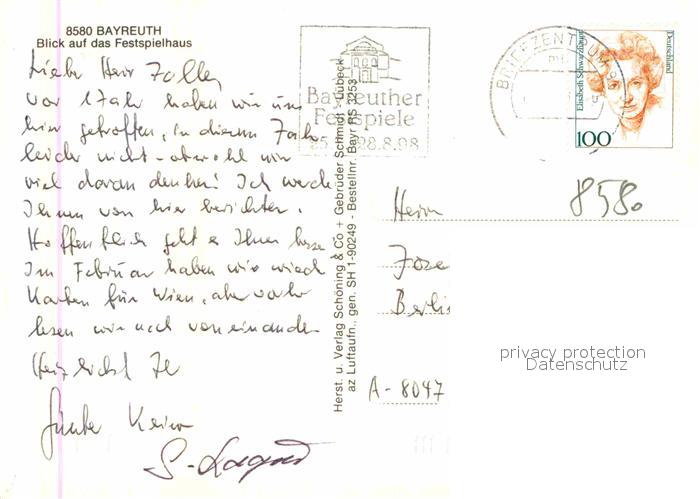 8580 BAYREUTH
Blick auf das Festspielhaus
Lieber Herr Zoller
vor 1 Jahr haben wir uns
hier getroffen, in diesem Jahr
leider nicht - obwohl wir
viel daran denken! Ich werde
Ihnen von hier berichten.
Hoffentlich geht es Ihnen besser
Im Februar haben wir wieder
Karten für Wien, aber vorher
lesen wir noch voneinander
Herzlichst Ihr
Günter
Herst. u. Verlag Schöning & Co + Gebrüder Schmidt - Lübeck
az Luftaufn., gen. SH 1-90249 - Bestellnr. Bayr BS 3253
Bayreuther
Festspiele
25. 28.8.98
BRIEFZENTRUM
Deutschland
Elisabeth Schwarzhaupt
100
8580
Herrn
Jose
Berli
A-8047
privacy protection
Datenschutz